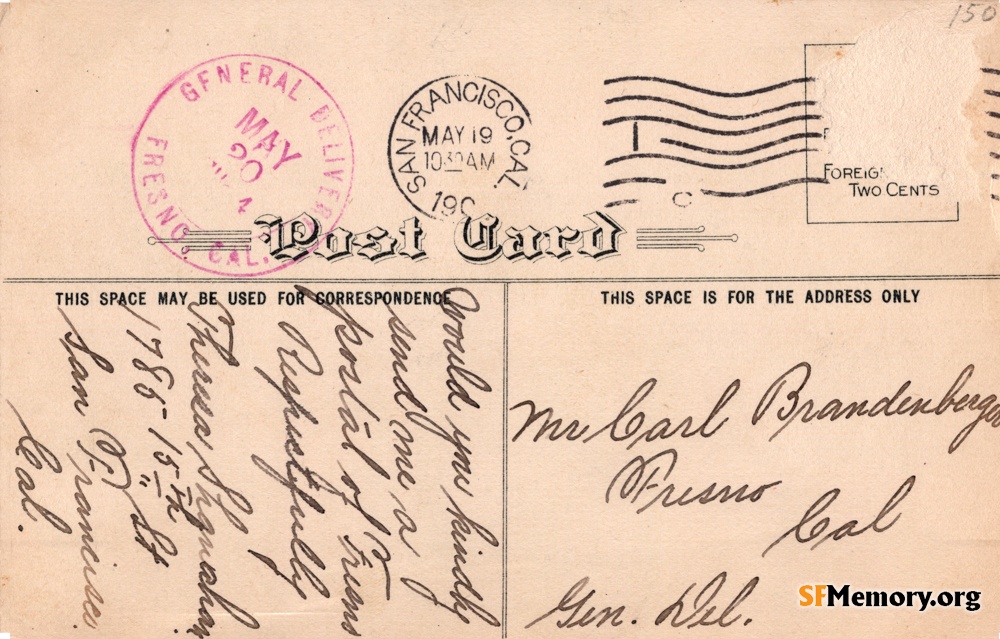 150
GENERAL DELIVERY
MAY
20
FRESNO, CAL.
SAN FRANCISCO, CAL.
MAY 19
10 30 AM
190
C
FOREIGN
TWO CENTS
Post Card
THIS SPACE MAY BE USED FOR CORRESPONDENCE
Would you kindly
send me a
postal of Fresno
Respectfully
Theresa
1785-15th St
San Francisco.
Cal.
THIS SPACE IS FOR THE ADDRESS ONLY
Mr Carl Brandenberger
Fresno
Cal
Gen. Del.
SFMemory.org